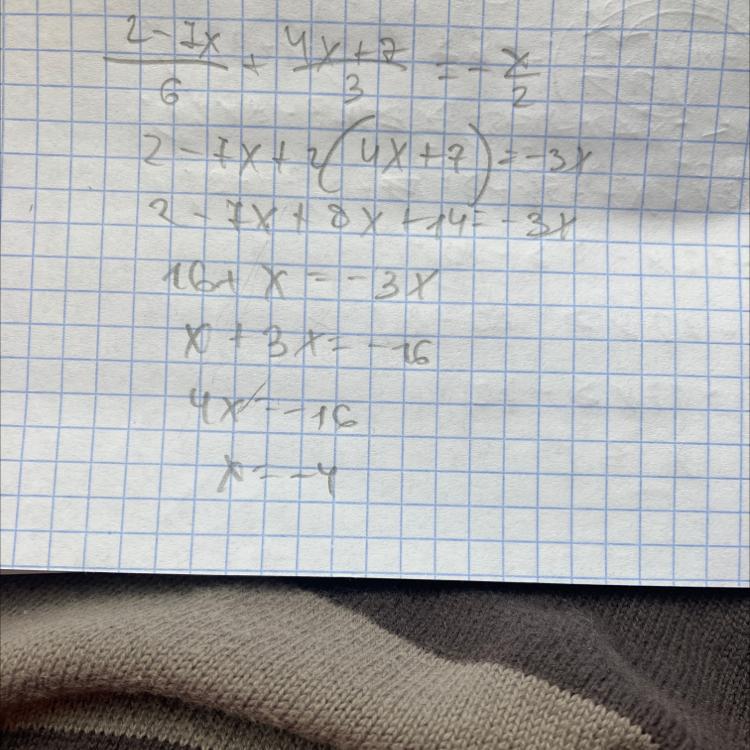 (2-7x)/6 + (4x+7)/3 = -x/2
2-7x+2(4x+7)=-3x
2-7x+8x+14=-3x
16+x=-3x
x+3x=-16
4x=-16
x=-4